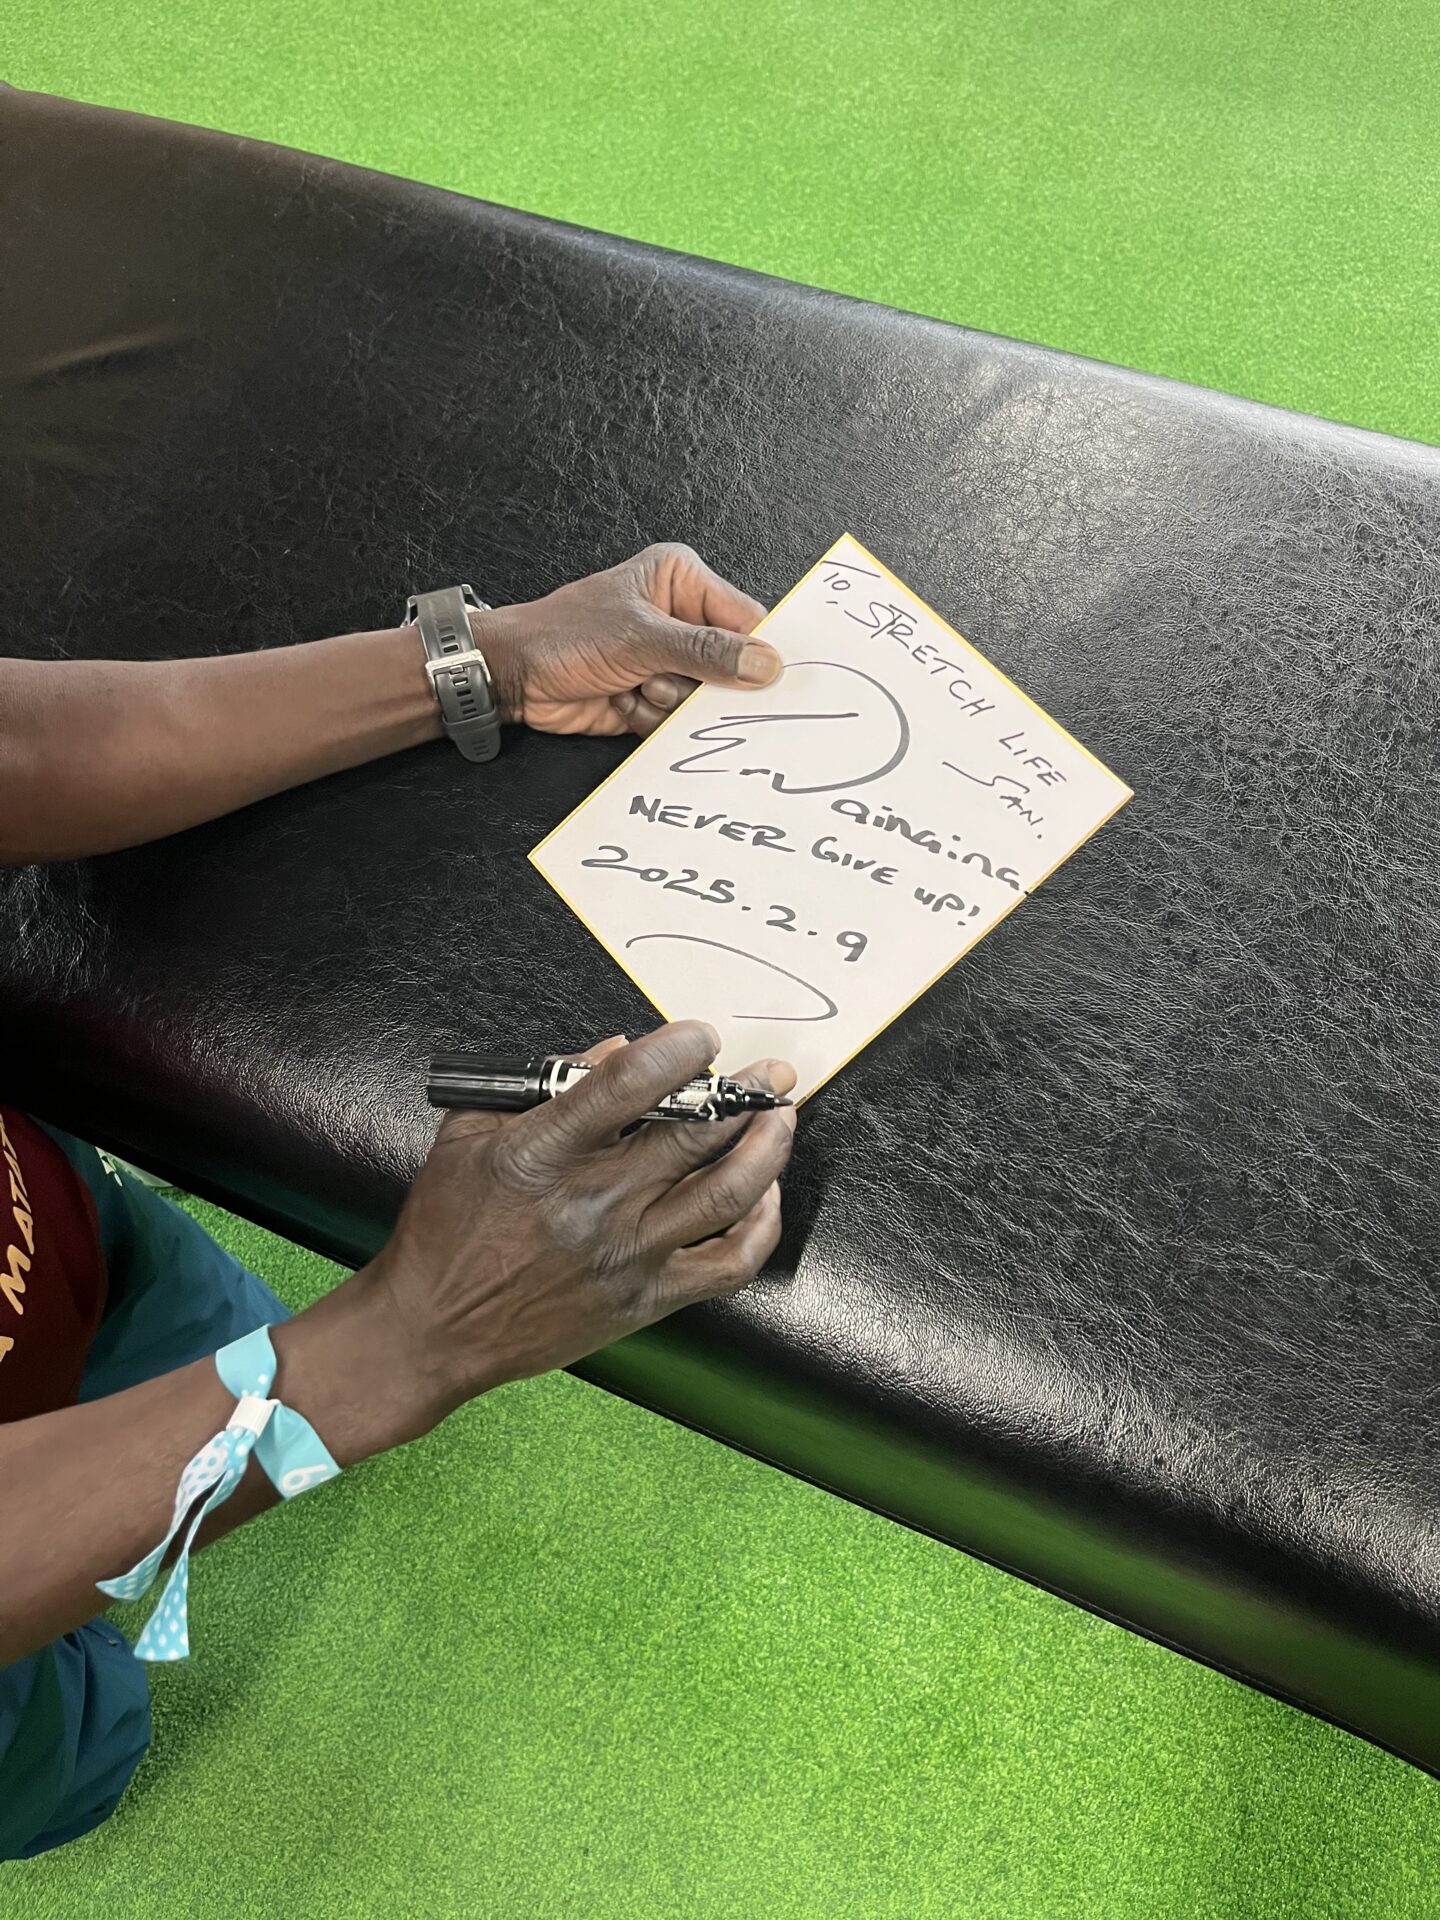 TO, STRETCH LIFE
SAN.
E. Wainaina
NEVER GIVE UP!
2025.2.9